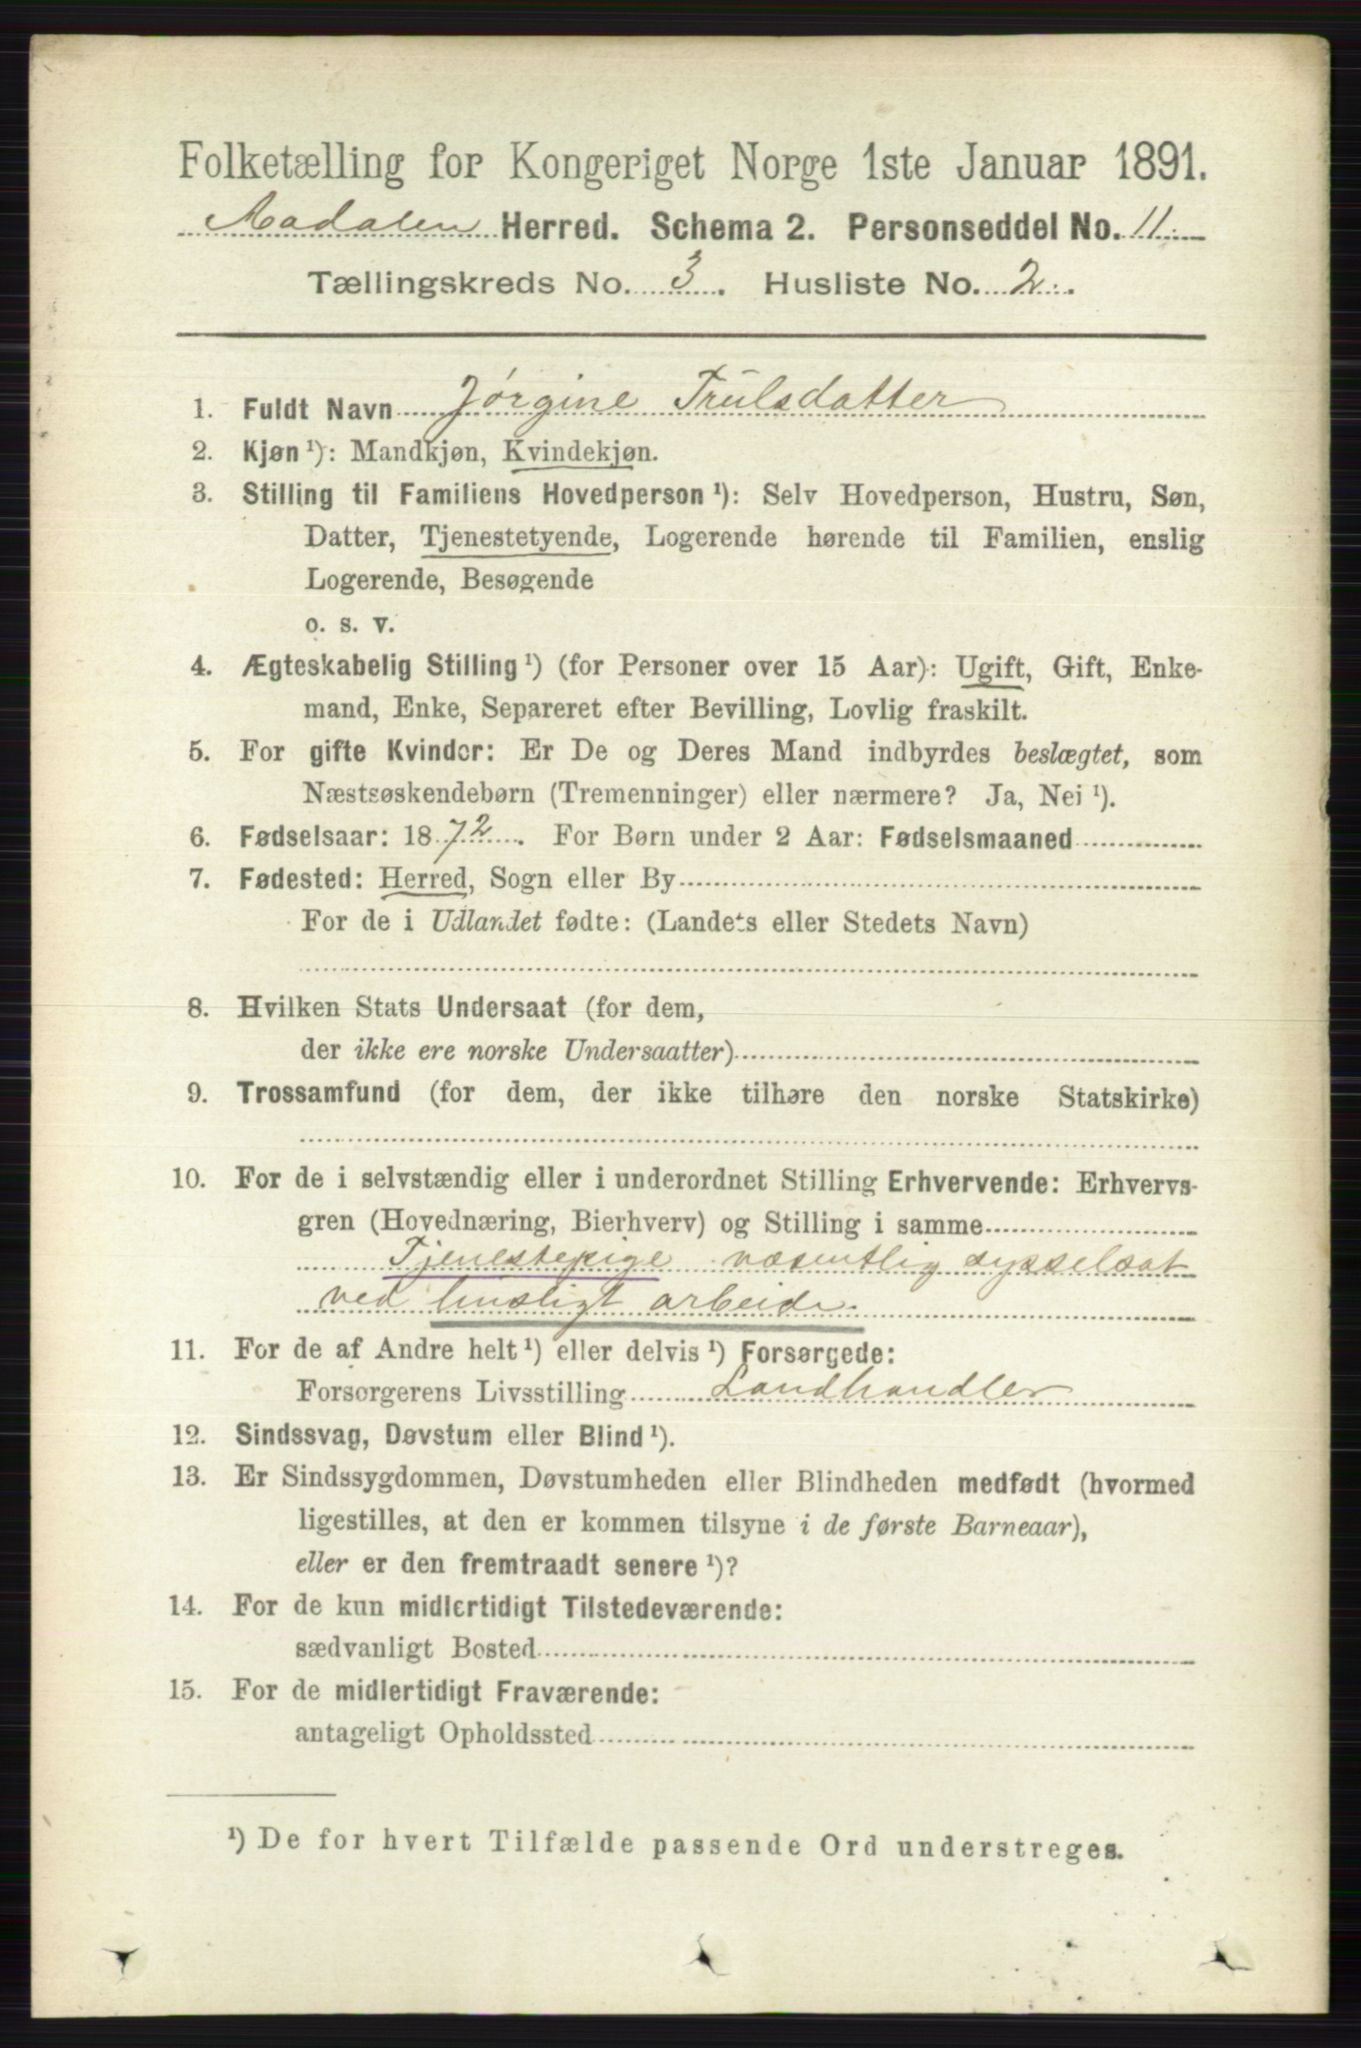 Folketælling for Kongeriget Norge 1ste Januar 1891.
Aadalen Herred. Schema 2. Personseddel No. 11.
Tællingskreds No. 3. Husliste No. 2.
1. Fuldt Navn Jørgine Trulsdatter
2. Kjøn ¹): Mandkjøn, Kvindekjøn.
3. Stilling til Familiens Hovedperson ¹): Selv Hovedperson, Hustru, Søn,
Datter, Tjenestetyende, Logerende hørende til Familien, enslig
Logerende, Besøgende
o. s. v.
4. Ægteskabelig Stilling ¹) (for Personer over 15 Aar): Ugift, Gift, Enke-
mand, Enke, Separeret efter Bevilling, Lovlig fraskilt.
5. For gifte Kvinder: Er De og Deres Mand indbyrdes beslægtet, som
Næstsøskendebørn (Tremenninger) eller nærmere? Ja, Nei ¹).
6. Fødselsaar: 1872. For Børn under 2 Aar: Fødselsmaaned
7. Fødested: Herred, Sogn eller By
For de i Udlandet fødte: (Landets eller Stedets Navn)
8. Hvilken Stats Undersaat (for dem,
der ikke ere norske Undersaatter)
9. Trossamfund (for dem, der ikke tilhøre den norske Statskirke)
10. For de i selvstændig eller i underordnet Stilling Erhvervende: Erhvervs-
gren (Hovednæring, Bierhverv) og Stilling i samme
Tjenestepige væsentlig sysselsat
ved husligt arbeide.
11. For de af Andre helt ¹) eller delvis ¹) Forsørgede:
Forsørgerens Livsstilling Landhandler
12. Sindssvag, Døvstum eller Blind ¹).
13. Er Sindssygdommen, Døvstumheden eller Blindheden medfødt (hvormed
ligestilles, at den er kommen tilsyne i de første Barneaar),
eller er den fremtraadt senere ¹)?
14. For de kun midlertidigt Tilstedeværende:
sædvanligt Bosted
15. For de midlertidigt Fraværende:
antageligt Opholdssted
¹) De for hvert Tilfælde passende Ord understreges.